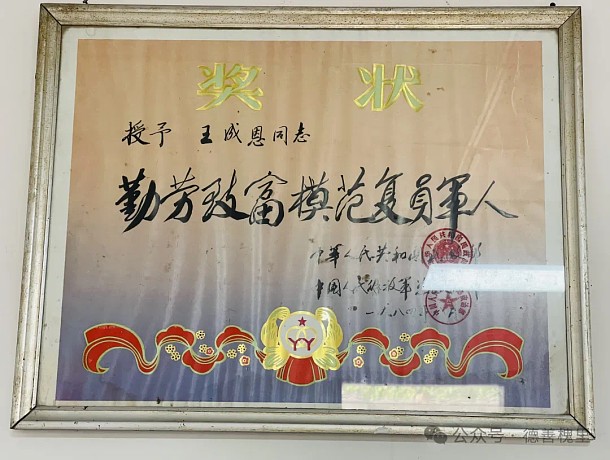 奖 状
授予 王成恩同志
勤劳致富模范复员軍人
中華人民共和国
中国人民解放軍
一九八四
公众号 · 德善槐里